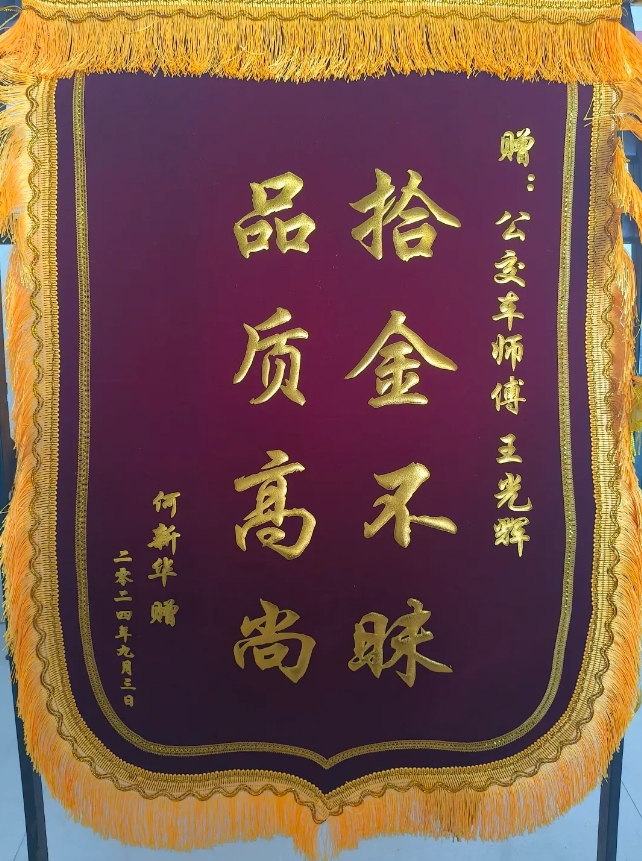 赠：公交车师傅 王光辉
拾金不昧
品质高尚
何新华 赠
二零二四年九月三日